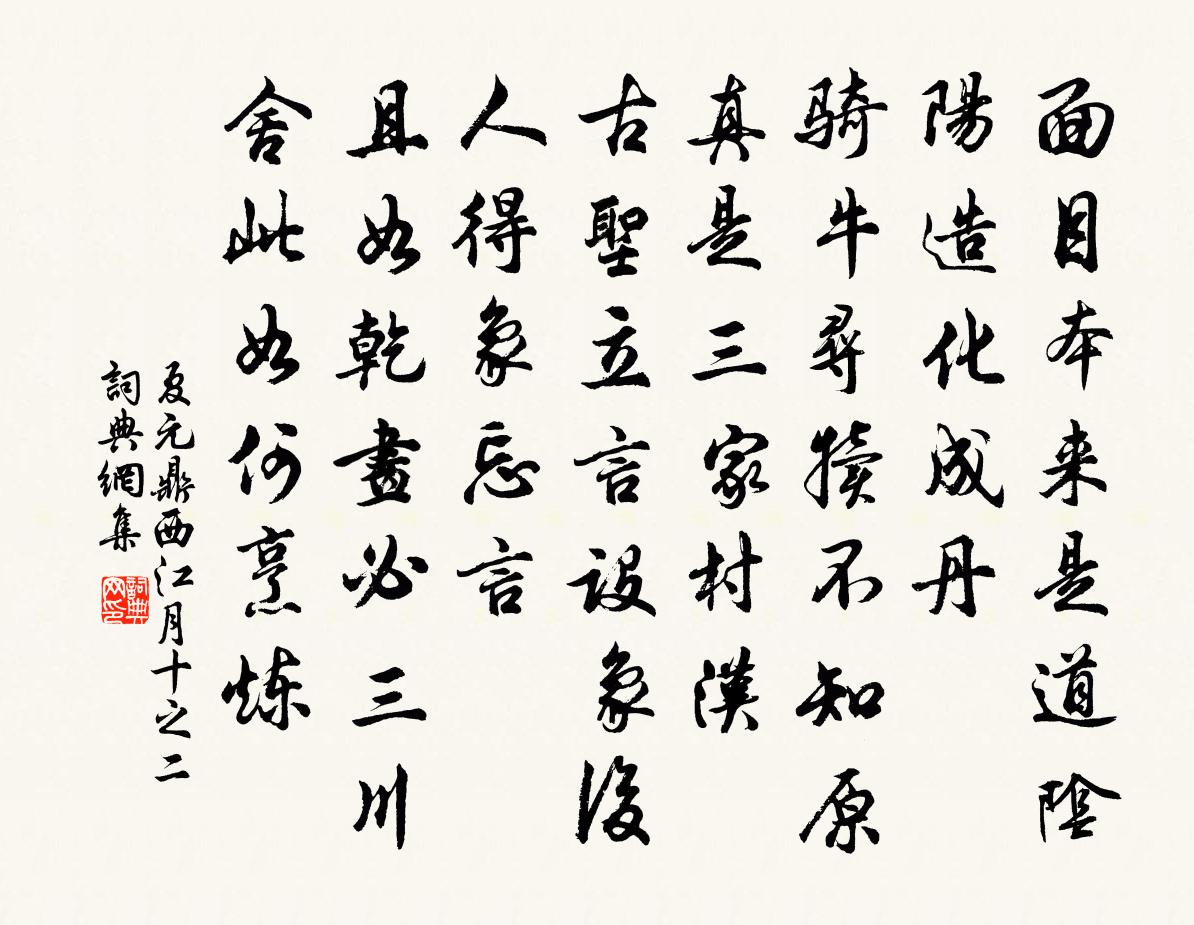 面目本来是道陰
陽造化成丹
騎牛尋犢不知原
真是三家村漢
古聖立言設象後
人得象忘言
且如乾畫必三川
舍此如何烹炼
夏元鼎西江月十之二
詞典網集
詞典网印